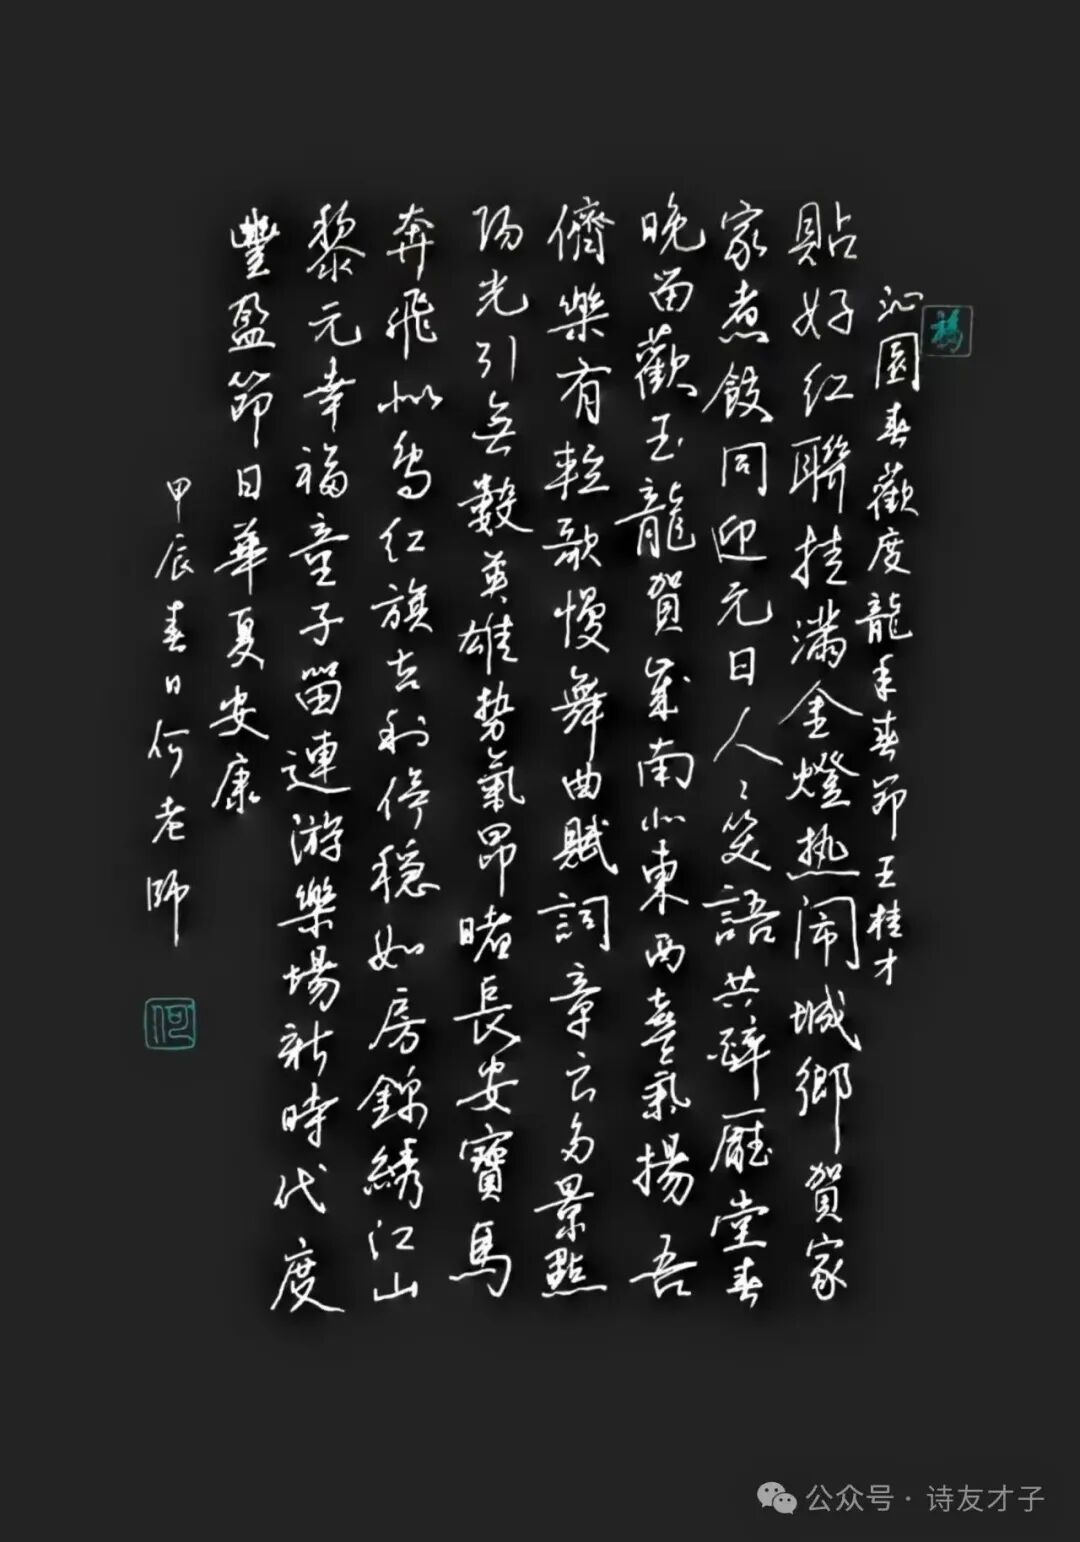 福
沁園春歡度龍年春節王桂才
貼好红聯挂滿金燈热闹城鄉賀家
家煮餃同迎元日人〻笑語共醉廳堂春
晚留歡玉龍賀歲南北東西喜氣揚吾
儕樂有輕歌慢舞曲賦詞章云多景點
阳光引無數英雄势氣昂睹長安寶馬
奔飛似鸟红旗吉利停穩如房錦绣江山
黎元幸福童子留連游樂場新時代度
豐盈節日華夏安康
甲辰春日何老師
何
公众号·诗友才子